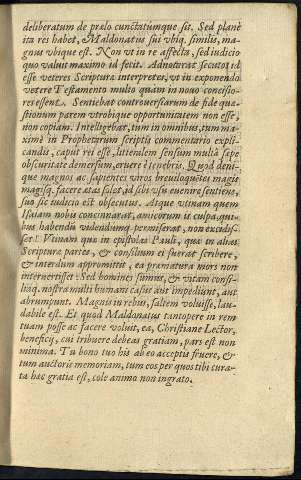 deliberatum de prælo cunctatiumque sit. Sed planè
ita res habet, Maldonatus sui vbiq, similis, ma-
gnus vbique est. Non vt in re affecta, sed iudicio
quo valuit maximo id fecit. Adnotarat secutos id
esse veteres Scripturæ interpretes, vt in exponendo
vetere Testamento multo quàm in nouo concisio-
res essent. Sentiebat controuersiarum de fide quæ-
stionum parem vtrobique opportunitatem non esse,
non copiam. Intelligebat, tum in omnibus, tum ma-
ximè in Prophetarum scriptis commentario expli-
candis, caput rei esse, litteralem sensum multa sæpe
obscuritate demersum, eruere è tenebris. Quod deni-
que magnos ac sapientes viros breuiloquētes magis
magisq, facere ætas solet, id sibi vsu euenire sentiens,
suo sic iudicio est obsecutus. Atque vtinam quem
Isaiam nobis concinnarat, amicorum is culpa, qui-
bus habendū videndumq, permiserat, non excidis-
set! Vtinam quæ in epistolas Pauli, quæ in alias
Scripturæ partes, & consilium ei fuerat scribere,
& interdum appromittit, ea præmatura mors non
interuertisset. Sed homines sumus, & vitam consi-
liaq, nostra multi humani casus aut impediunt, aut
abrumpunt. Magnis in rebus, saltem voluisse, lau-
dabile est. Et quod Maldonatus tantopere in rem
tuam posse ac facere voluit, ea, Christiane Lector,
beneficij, cui tribuere debeas gratiam, pars est non
minima. Tu bono tuo his ab eo acceptis fruere, &
tum auctoris memoriam, tum eos per quos tibi cura-
ta hæc gratia est, cole animo non ingrato.